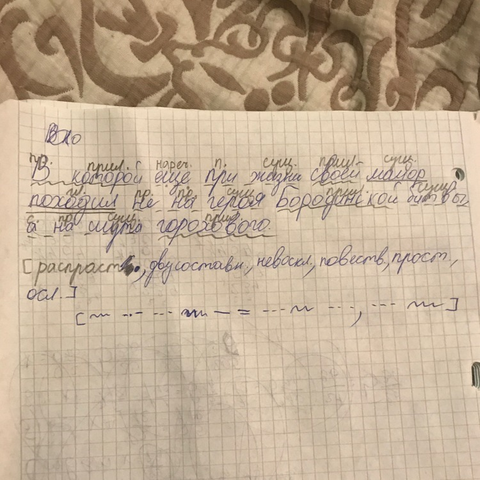 пр. прил. нареч. п. сущ. прил. сущ.
В которой еще при жизни своей майор
гл. пр. сущ. прил. сущ.
походил не на героя Бородинской битвы
с. пр. сущ. прил.
а на шута горохового.
[распрост., двусоставн., невоскл., повеств., прост.,
осл.]